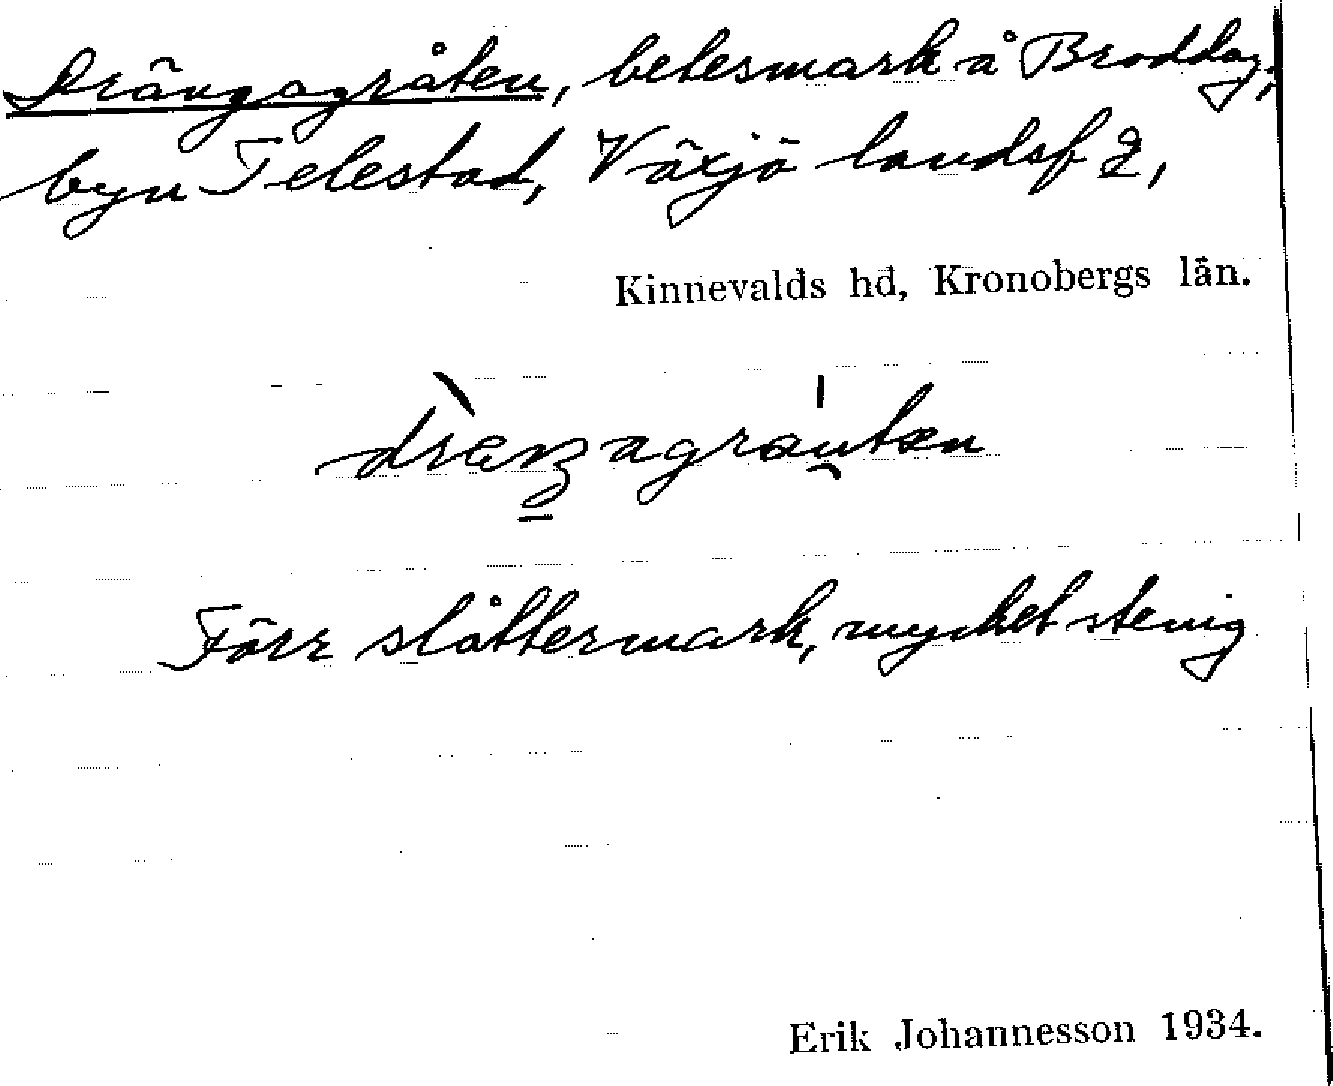 Drängagråten, betesmark å Broddag,
byn Telestad, Växjö landsf 2,
Kinnevalds hd, Kronobergs län.
Förr slåttermark, mycket stenig
Erik Johannesson 1934.